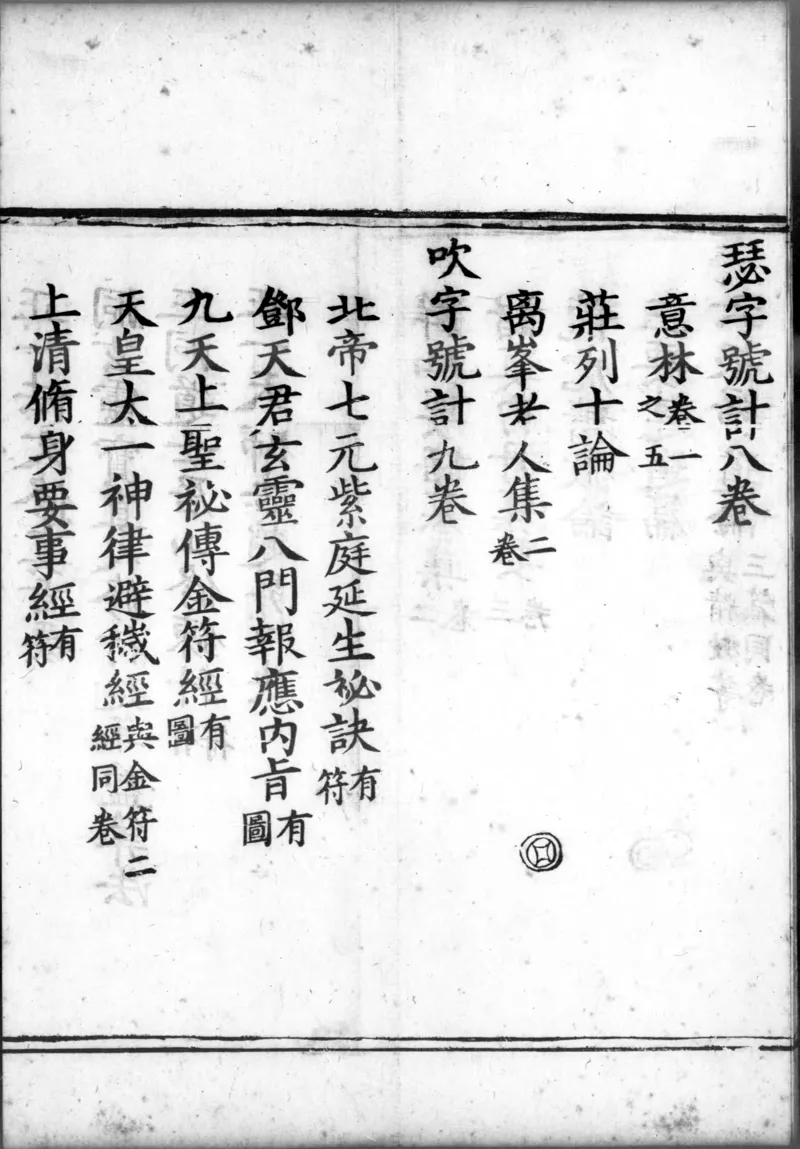 瑟字號計八卷
意林卷一之五
莊列十論
离峯老人集二卷
吹字號計九卷
北帝七元紫庭延生祕訣有符
鄧天君玄靈八門報應内旨有圖
九天上聖祕傳金符經有圖
天皇太一神律避穢經與金符二經同卷
上清脩身要事經有符